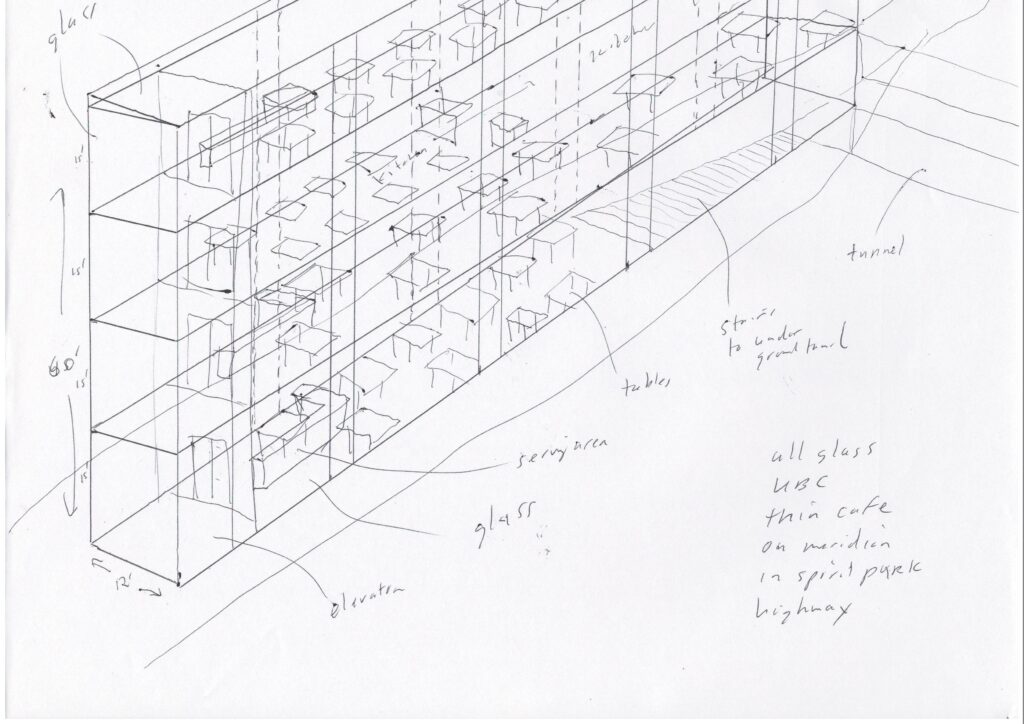 glass
kitchen
kitchen
15'
15'
60'
15'
15'
12'
tunnel
stairs
to under
ground tunnel
tables
serving area
glass
elevator
all glass
UBC
thin cafe
on meridian
in spirit park
highway